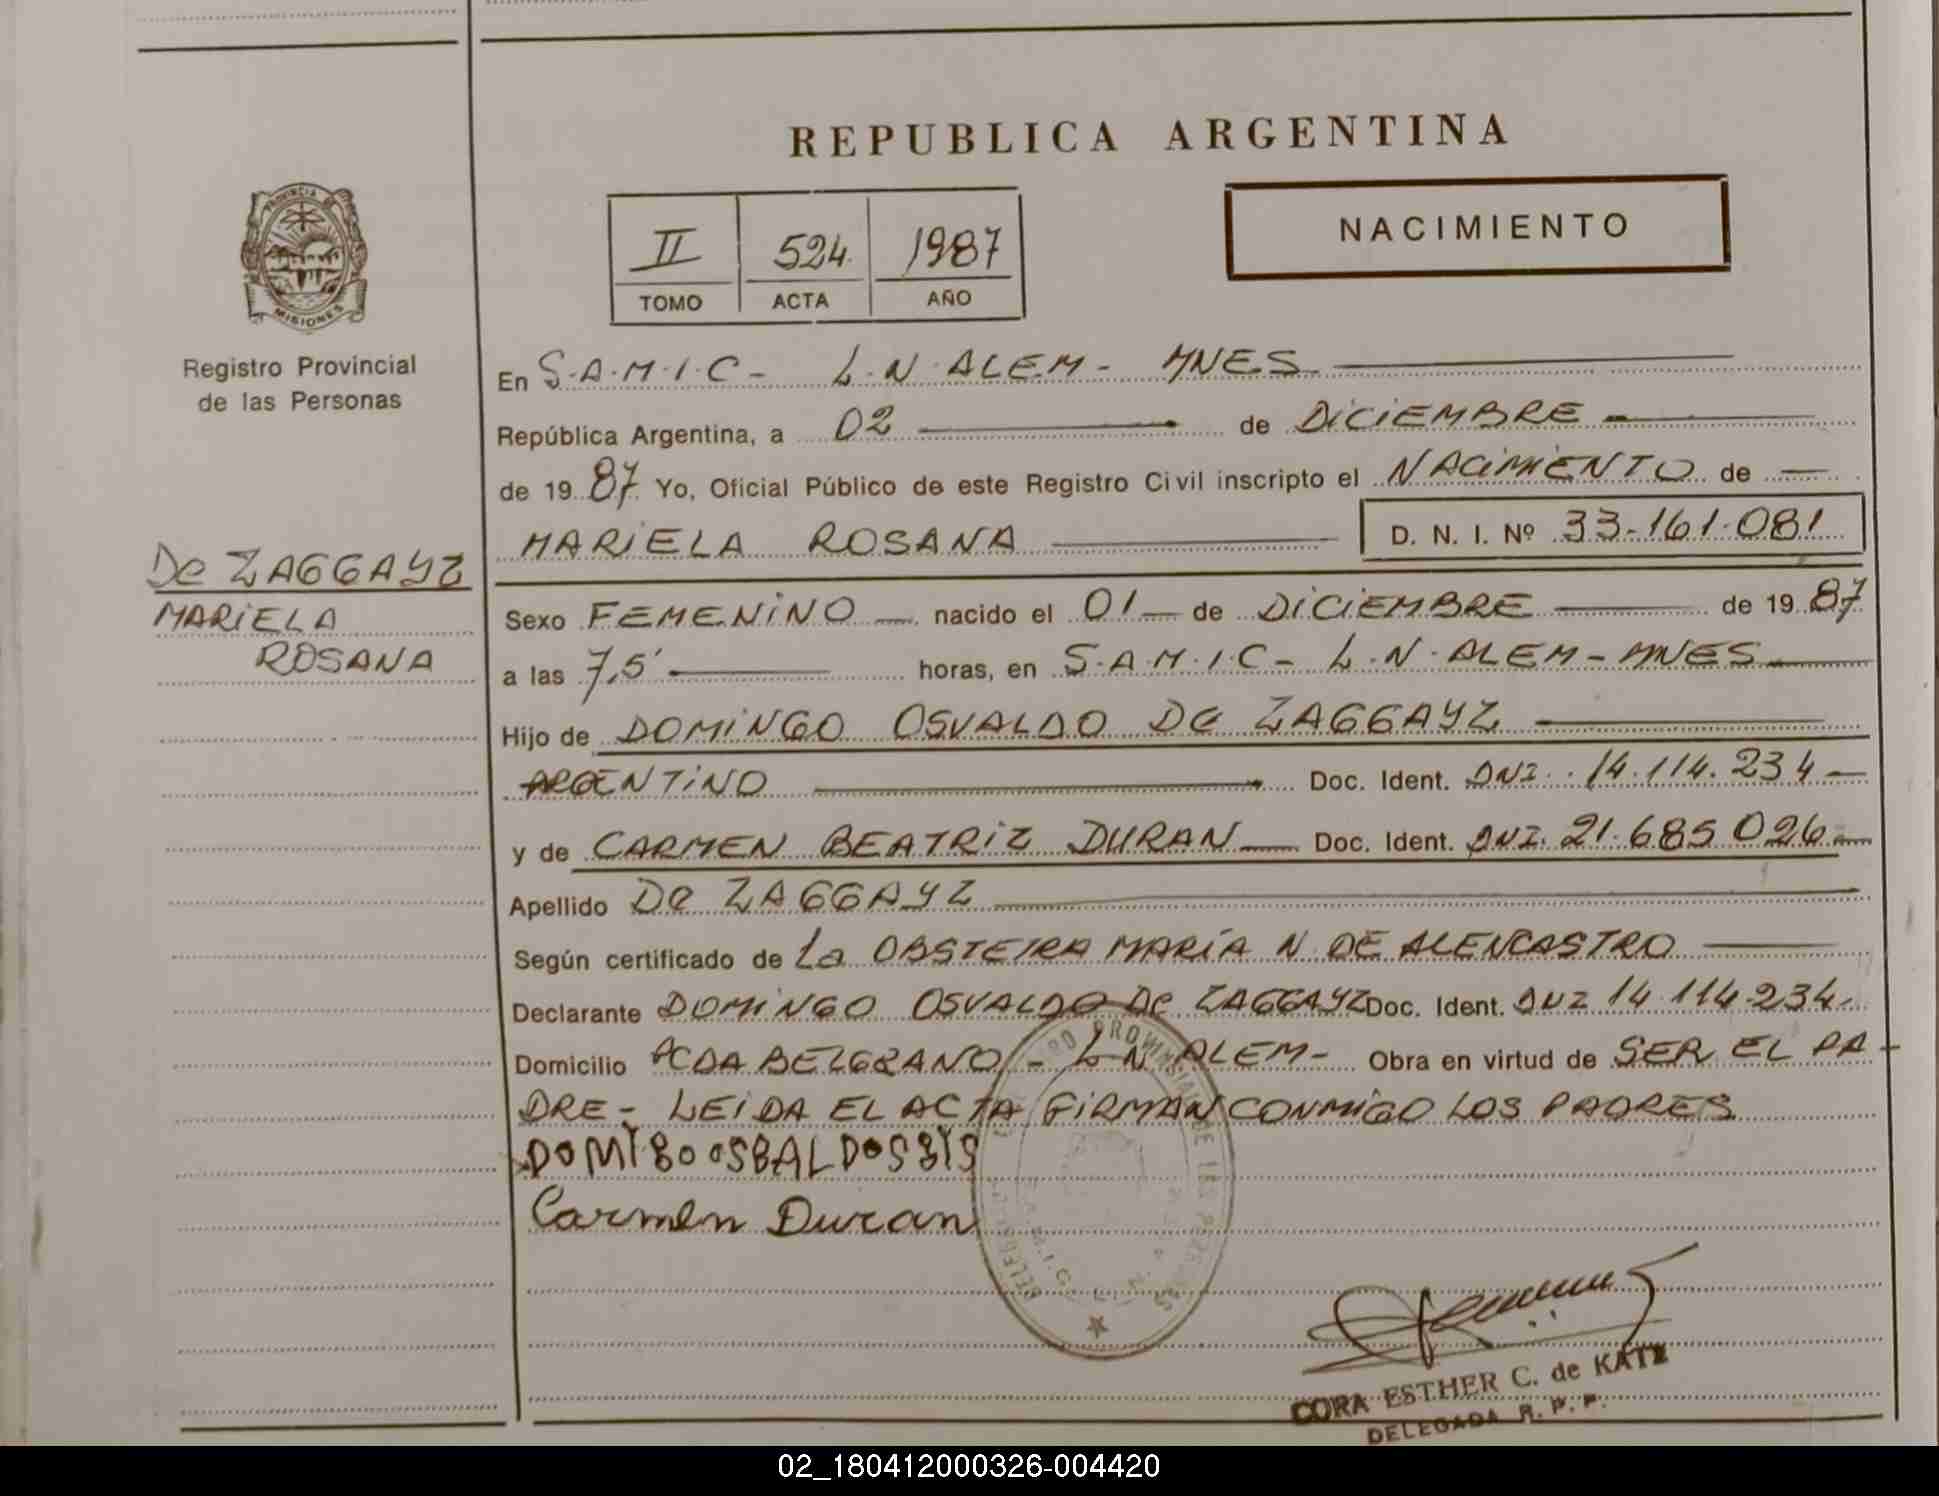 REPUBLICA ARGENTINA
NACIMIENTO
II 524 1987
TOMO ACTA AÑO
PROVINCIA DE
MISIONES
Registro Provincial
de las Personas
De ZAGGAYZ
MARIELA
ROSANA
En S.A.M.I.C - L.N. ALEM - MNES
República Argentina, a 02 de DICIEMBRE
de 1987 Yo, Oficial Público de este Registro Civil inscripto el NACIMIENTO de
MARIELA ROSANA D. N. I. Nº 33-161-081
Sexo FEMENINO nacido el 01 de DICIEMBRE de 1987
a las 7,5' horas, en S.A.M.I.C - L.N. ALEM - MNES
Hijo de DOMINGO OSVALDO DE ZAGGAYZ
ARGENTINO Doc. Ident. DNI. 14.114.234
y de CARMEN BEATRIZ DURAN Doc. Ident. DNI. 21.685.026
Apellido De ZAGGAYZ
Según certificado de La OBSTETRA MARÍA N DE ALENCASTRO
Declarante DOMINGO OSVALDO De ZAGGAYZ Doc. Ident. DNI 14.114.234
Domicilio PCDA BELGRANO - L.N ALEM - Obra en virtud de SER EL PA
DRE - LEIDA EL ACTA FIRMAN CONMIGO LOS PADRES
Carmen Duran
CORA ESTHER C. de KATZ
DELEGADA R. P. P.
02_180412000326-004420